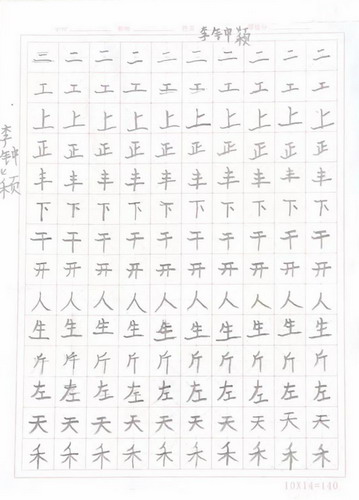 李钟颖
二二二二二二二二二二
工工工工工工工工工工
上上上上上上上上上上
正正正正正正正正正正
丰丰丰丰丰丰丰丰丰丰
下下下下下下下下下下
干干干干干干干干干干
开开开开开开开开开开
人人人人人人人人人人
生生生生生生生生生生
斤斤斤斤斤斤斤斤斤斤
左左左左左左左左左左
天天天天天天天天天天
禾禾禾禾禾禾禾禾禾禾
李钟颖
10X14=140